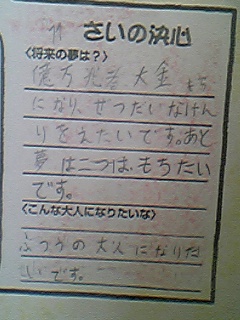 11さいの決心
〈将来の夢は？〉
億万兆者大金もち
になり、せつたいなけん
りをえたいです。あと
夢は二つは、もちたい
です。
〈こんな大人になりたいな〉
ふつうの大人になりた
いです。